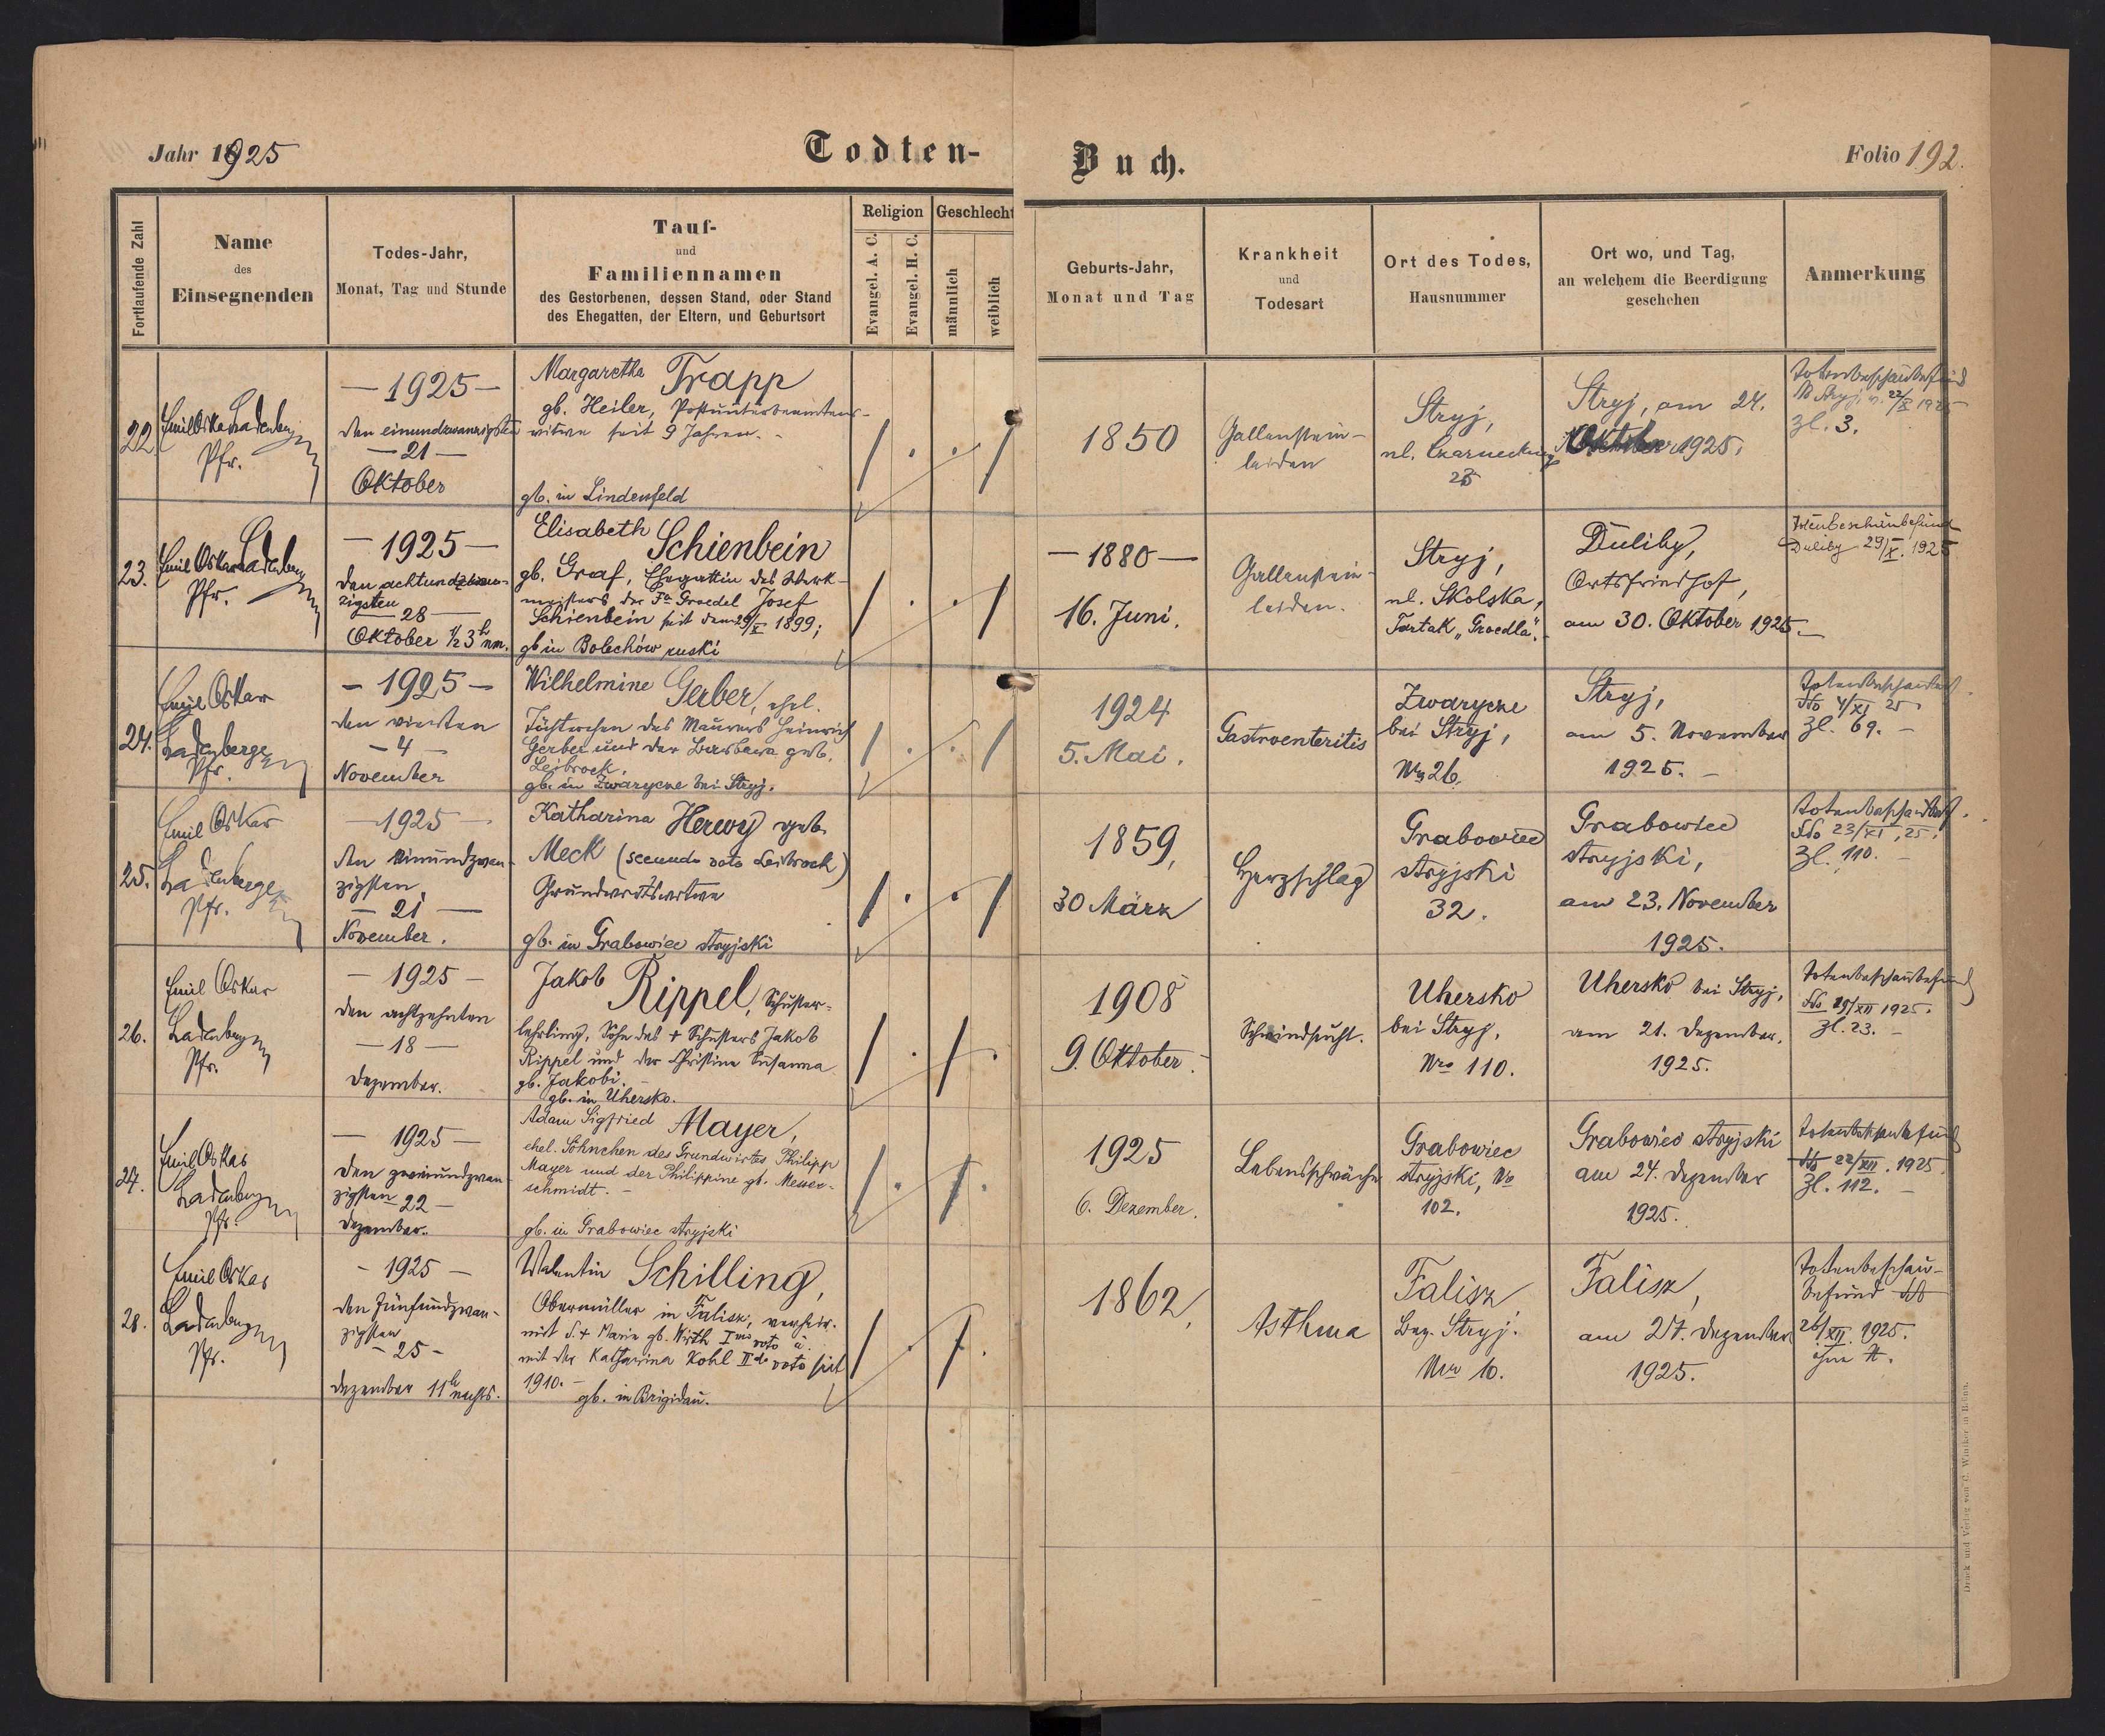 Jahr 1925
Todten-
Buch.
Folio 192.
Fortlaufende Zahl
Name
des
Einsegnenden
Todes-Jahr,
Monat, Tag und Stunde
Tauf-
und
Familiennamen
des Gestorbenen, dessen Stand, oder Stand
des Ehegatten, der Eltern, und Geburtsort
Religion
Evangel. A. C.
Evangel. H. C.
Geschlecht
männlich
weiblich
Geburts-Jahr,
Monat und Tag
Krankheit
und
Todesart
Ort des Todes,
Hausnummer
Ort wo, und Tag,
an welchem die Beerdigung
geschehen
Anmerkung
22.
Emil Oskar Ladenberger
Pfr.
— 1925 —
den einundzwanzigsten
— 21 —
Oktober
Margaretha Trapp
gb. Heiler, Postunterbeamtens-
witwe seit 9 Jahren. -
gb. in Lindenfeld
1850
Gallenstein-
leiden
Stryj,
25
Stryj, am 24.
Oktober 1925.
Totenbeschaubefund
Stryj, v. 22/X 1925
Zl. 3.
23.
Emil Oskar Ladenberger
Pfr.
— 1925 —
den achtundzwan-
zigsten
28 —
Oktober ½ 3 h nm.
Elisabeth Schienbein
gb. Graf, Ehegattin des Werk-
meisters der Fa Groedel Josef
Schienbein seit dem 29/X 1899;
gb in Bolechów ruski
— 1880 —
16. Juni.
Gallenstein-
leiden.
Stryj,
ul. Skolska,
Tartak „Groedla".
Duliby,
Ortsfriedhof,
am 30. Oktober 1925. —
Totenbeschaubefund
Duliby 29/X. 1925
24.
Emil Oskar
Ladenberger
Pfr.
— 1925 —
den vierten
— 4 —
November
Wilhelmine Gerber, ehel.
Töchterchen des Maurers Heinrich
Gerber und der Barbara geb.
Leibrock.
gb. in Zwarycze bei Stryj.
1924
5. Mai.
Gastroenteritis
Zwarycze
bei Stryj,
Nro 26.
Stryj,
am 5. November
1925. —
Totenbeschaubef.
ddo 4/XI 25.
Zl. 69. —
25.
Emil Oskar
Ladenberger
Pfr.
— 1925 —
den einundzwan-
zigsten
— 21 —
November.
Katharina Herwy geb.
Meck (secundo voto Leibrock)
Grundwirtswitwe
gb. in Grabowiec stryjski
1859,
30 März
Herzschlag
Grabowiec
stryjski
32.
Grabowiec
stryjski,
am 23. November
1925.
Totenbeschaubef.
ddo 23/XI, 25.
Zl. 110. —
26.
Emil Oskar
Ladenberger
Pfr.
— 1925 —
den achtzehnten
— 18 —
Dezember.
Jakob Rippel, Schuster-
lehrling, Sohn des + Schusters Jakob
Rippel und der Christine Susanna
gb. Jakobi. —
gb. in Uhersko.
1908
9. Oktober.
Schwindsucht.
Uhersko
bei Stryj.
Nro 110.
Uhersko bei Stryj,
am 21. Dezember.
1925.
Totenbeschaubefund
ddo 19/XII 1925.
Zl. 23. —
27.
Emil Oskar
Ladenberger
Pfr.
— 1925 —
den zweiundzwan-
zigsten 22 —
Dezember.
Adam Sigfried Mayer,
ehel. Söhnchen des Grundwirtes Philipp
Mayer und der Philippine gb. Messer-
schmidt. —
gb. in Grabowiec stryjski
1925
6. Dezember.
Lebensschwäche
Grabowiec
stryjski, No
102.
Grabowiec stryjski
am 24. Dezember
1925.
Totenbeschaubefund
ddo 22/XII. 1925.
Zl. 112. —
28.
Emil Oskar
Ladenberger
Pfr.
— 1925 —
den fünfundzwan-
zigsten
— 25 —
Dezember 11 h nachts.
Valentin Schilling,
Obermüller in Falisz, verheir.
mit d. + Maria gb. Wirth I mo voto u.
mit der Katharina Kohl II do voto seit
1910. —
gb. in Brigidau.
1862,
Asthma
Falisz
Bez. Stryj.
Nro 10.
Falisz,
am 27. Dezember
1925.
Totenbeschau-
befund ddo
26/XII. 1925.
ohne Zl.
Druck und Verlag von C. Winiker in Brünn.